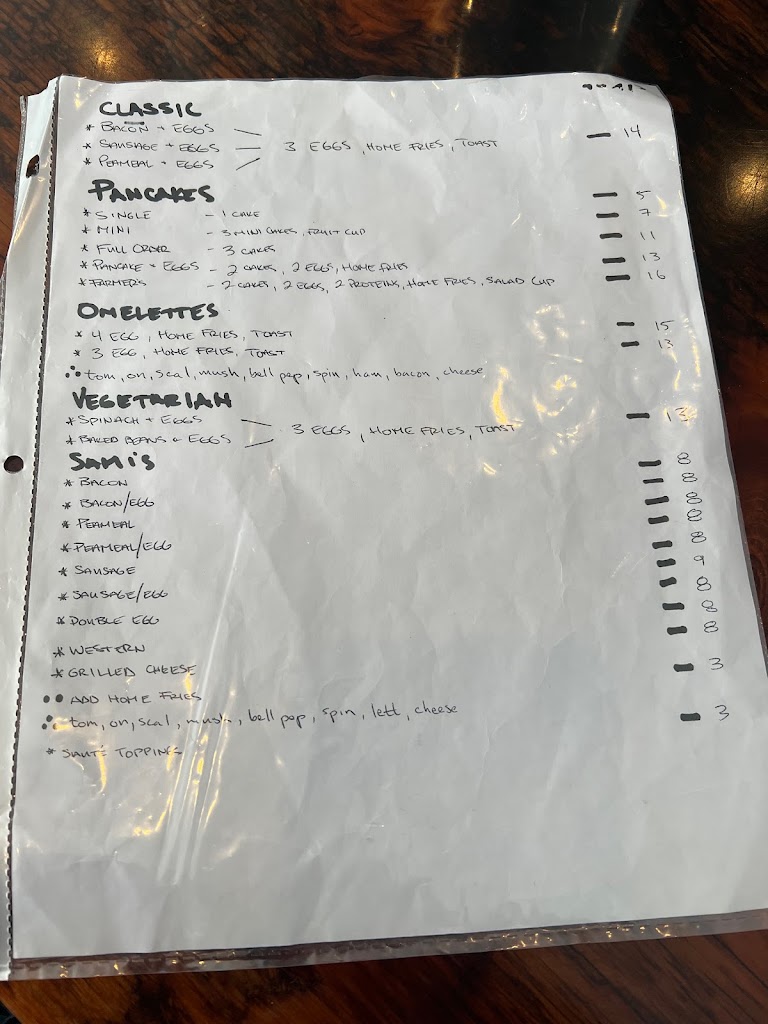 CLASSIC
* BACON + EGGS
* SAUSAGE + EGGS 3 EGGS, HOME FRIES, TOAST — 14
* PEAMEAL + EGGS
PANCAKES
* SINGLE - 1 CAKE — 5
* MINI - 3 MINI CAKES, FRUIT CUP — 7
* FULL ORDER - 3 CAKES — 11
* PANCAKE + EGGS - 2 CAKES, 2 EGGS, HOME FRIES — 13
* FARMER'S - 2 CAKES, 2 EGGS, 2 PROTEINS, HOME FRIES, SALAD CUP — 16
OMELETTES
* 4 EGG, HOME FRIES, TOAST — 15
* 3 EGG, HOME FRIES, TOAST — 13
tom, on, scal, mush, bell pep, spin, ham, bacon, cheese
VEGETARIAN
* SPINACH + EGGS
* BAKED BEANS & EGGS 3 EGGS, HOME FRIES, TOAST — 13
SAMI'S
* BACON — 8
* BACON/EGG — 8
* PEAMEAL — 8
* PEAMEAL/EGG — 8
* SAUSAGE — 8
* SAUSAGE/EGG — 9
* DOUBLE EGG — 8
* WESTERN — 8
* GRILLED CHEESE — 8
•• ADD HOME FRIES — 3
tom, on, scal, mush, bell pep, spin, lett, cheese
* SAUTÉ TOPPINGS — 3